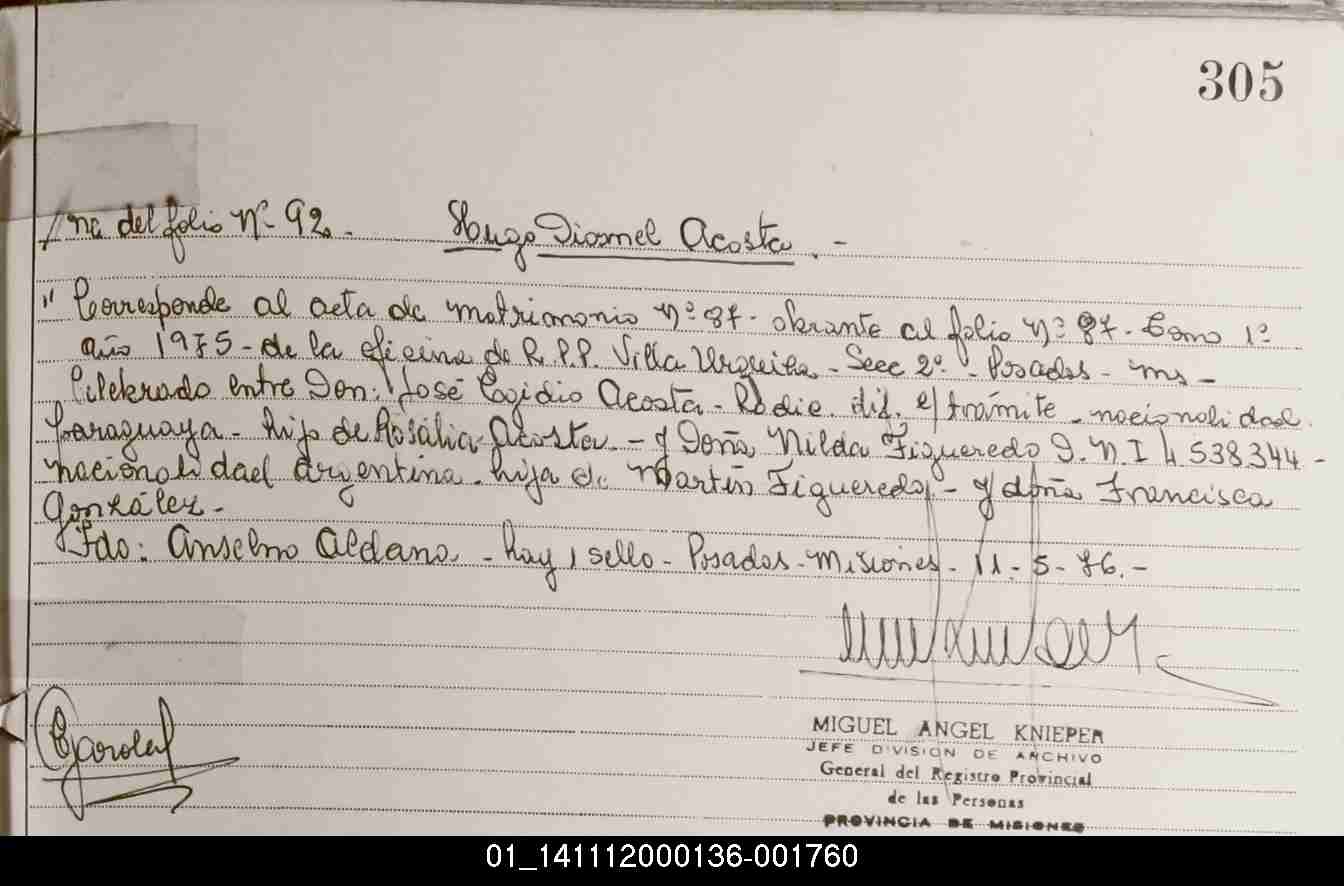 305
/ na del folio Nº 92. - Hugo Diosnel Acosta. -
" Corresponde al acta de matrimonio nº 87 - obrante al folio nº 87 - Tomo 1º
año 1975 - de la oficina de R.P.P. Villa Urquiza - Secc 2º - Posadas - ms -
Celebrado entre Don: José Egidio Acosta - R. dic. did. e/ trámite - nacionalidad
Paraguaya - hijo de Rosália Acosta - y Doña Nilda Figueredo D.N.I 4.538.344 -
nacionalidad argentina - hija de Martín Figueredo - y doña Francisca
González -
Fdo: Anselmo Aldana - hay 1 sello - Posadas - Misiones - 11 - 5 - 76. -
MIGUEL ANGEL KNIEPER
JEFE DIVISION DE ARCHIVO
General del Registro Provincial
de las Personas
PROVINCIA DE MISIONES
01_141112000136-001760